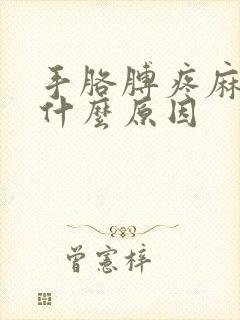 手胳膊疼麻
什麼原因
曾憲梓